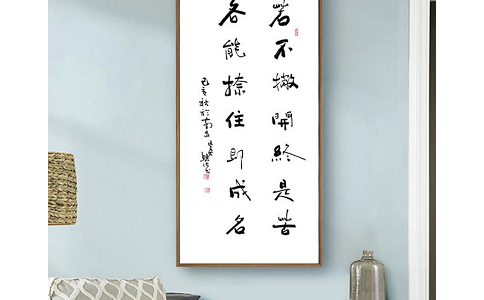 若不撇開終是苦
各能捺住即成名
己亥秋於南京